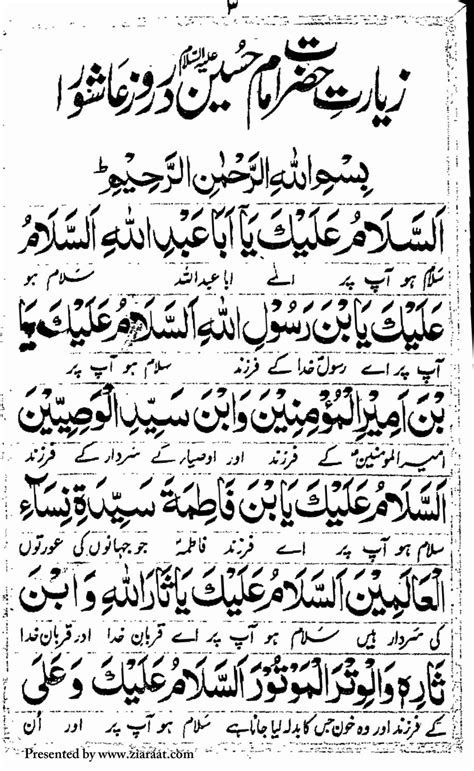 ۳
زیارتِ حضرت امام حسین علیہ السلام در روز عاشورا
بِسْمِ اللهِ الرَّحْمٰنِ الرَّحِيْمِ ط
اَلسَّلَامُ عَلَيْكَ يَآ اَبَا عَبْدِ اللهِ اَلسَّلَامُ
سلام ہو آپ پر اے ابا عبداللہ سلام ہو
عَلَيْكَ يَا بْنَ رَسُوْلِ اللهِ اَلسَّلَامُ عَلَيْكَ يَا
آپ پر اے رسولؐ خدا کے فرزند سلام ہو آپ پر
بْنَ اَمِيْرِ الْمُؤْمِنِيْنَ وَابْنَ سَيِّدِ الْوَصِيِّيْنَ
امیر المومنینؑ کے فرزند اور اوصیاء کے سردار کے فرزند
اَلسَّلَامُ عَلَيْكَ يَا بْنَ فَاطِمَةَ سَيِّدَةِ نِسَآءِ
سلام ہو آپ پر اے فرزند فاطمہؑ جو جہانوں کی عورتوں
الْعَالَمِيْنَ اَلسَّلَامُ عَلَيْكَ يَا ثَارَ اللهِ وَ ابْنَ
کی سردار ہیں سلام ہو آپ پر اے قربانِ خدا اور قربانِ خدا
ثَارِهٖ وَالْوِتْرَ الْمَوْتُوْرَ اَلسَّلَامُ عَلَيْكَ وَ عَلَى
کے فرزند اور وہ خون جس کا بدلہ لیا جانا ہے سلام ہو آپ پر اور اُن
Presented by www.ziaraat.com